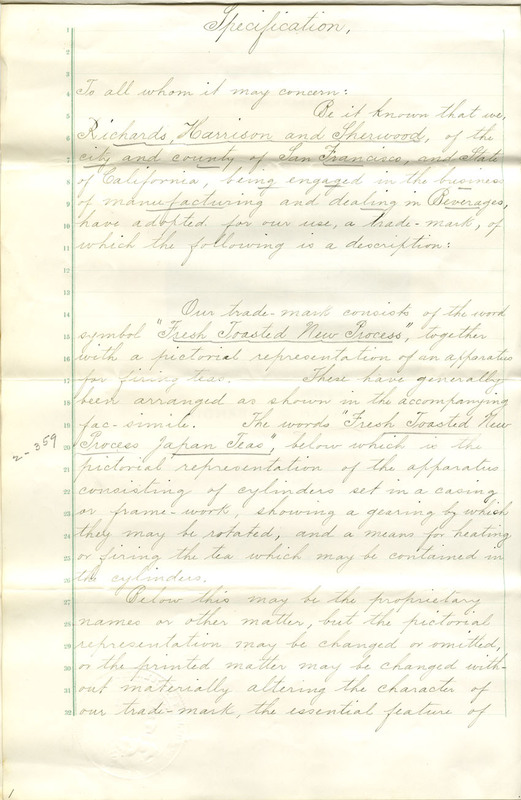 Specification.
To all whom it may concern:
Be it known that we,
Richards, Harrison and Sherwood, of the
city and county of San Francisco, and State
of California, being engaged in the business
of manufacturing and dealing in Beverages,
have adopted for our use, a trade-mark, of
which the following is a description:
Our trade-mark consists of the word
symbol "Fresh Toasted New Process", together
with a pictorial representation of an apparatus
for firing teas. These have generally
been arranged as shown in the accompanying
fac-simile. The words "Fresh Toasted New
Process Japan Teas", below which is the
pictorial representation of the apparatus
consisting of cylinders set in a casing
or frame-work, showing a gearing by which
they may be rotated, and a means for heating
or firing the tea which may be contained in
the cylinders.
Below this may be the proprietary
names or other matter, but the pictorial
representation may be changed or omitted,
or the printed matter may be changed with-
out materially altering the character of
our trade-mark, the essential feature of
2-359
1
2
3
4
5
6
7
8
9
10
11
12
13
14
15
16
17
18
19
20
21
22
23
24
25
26
27
28
29
30
31
32